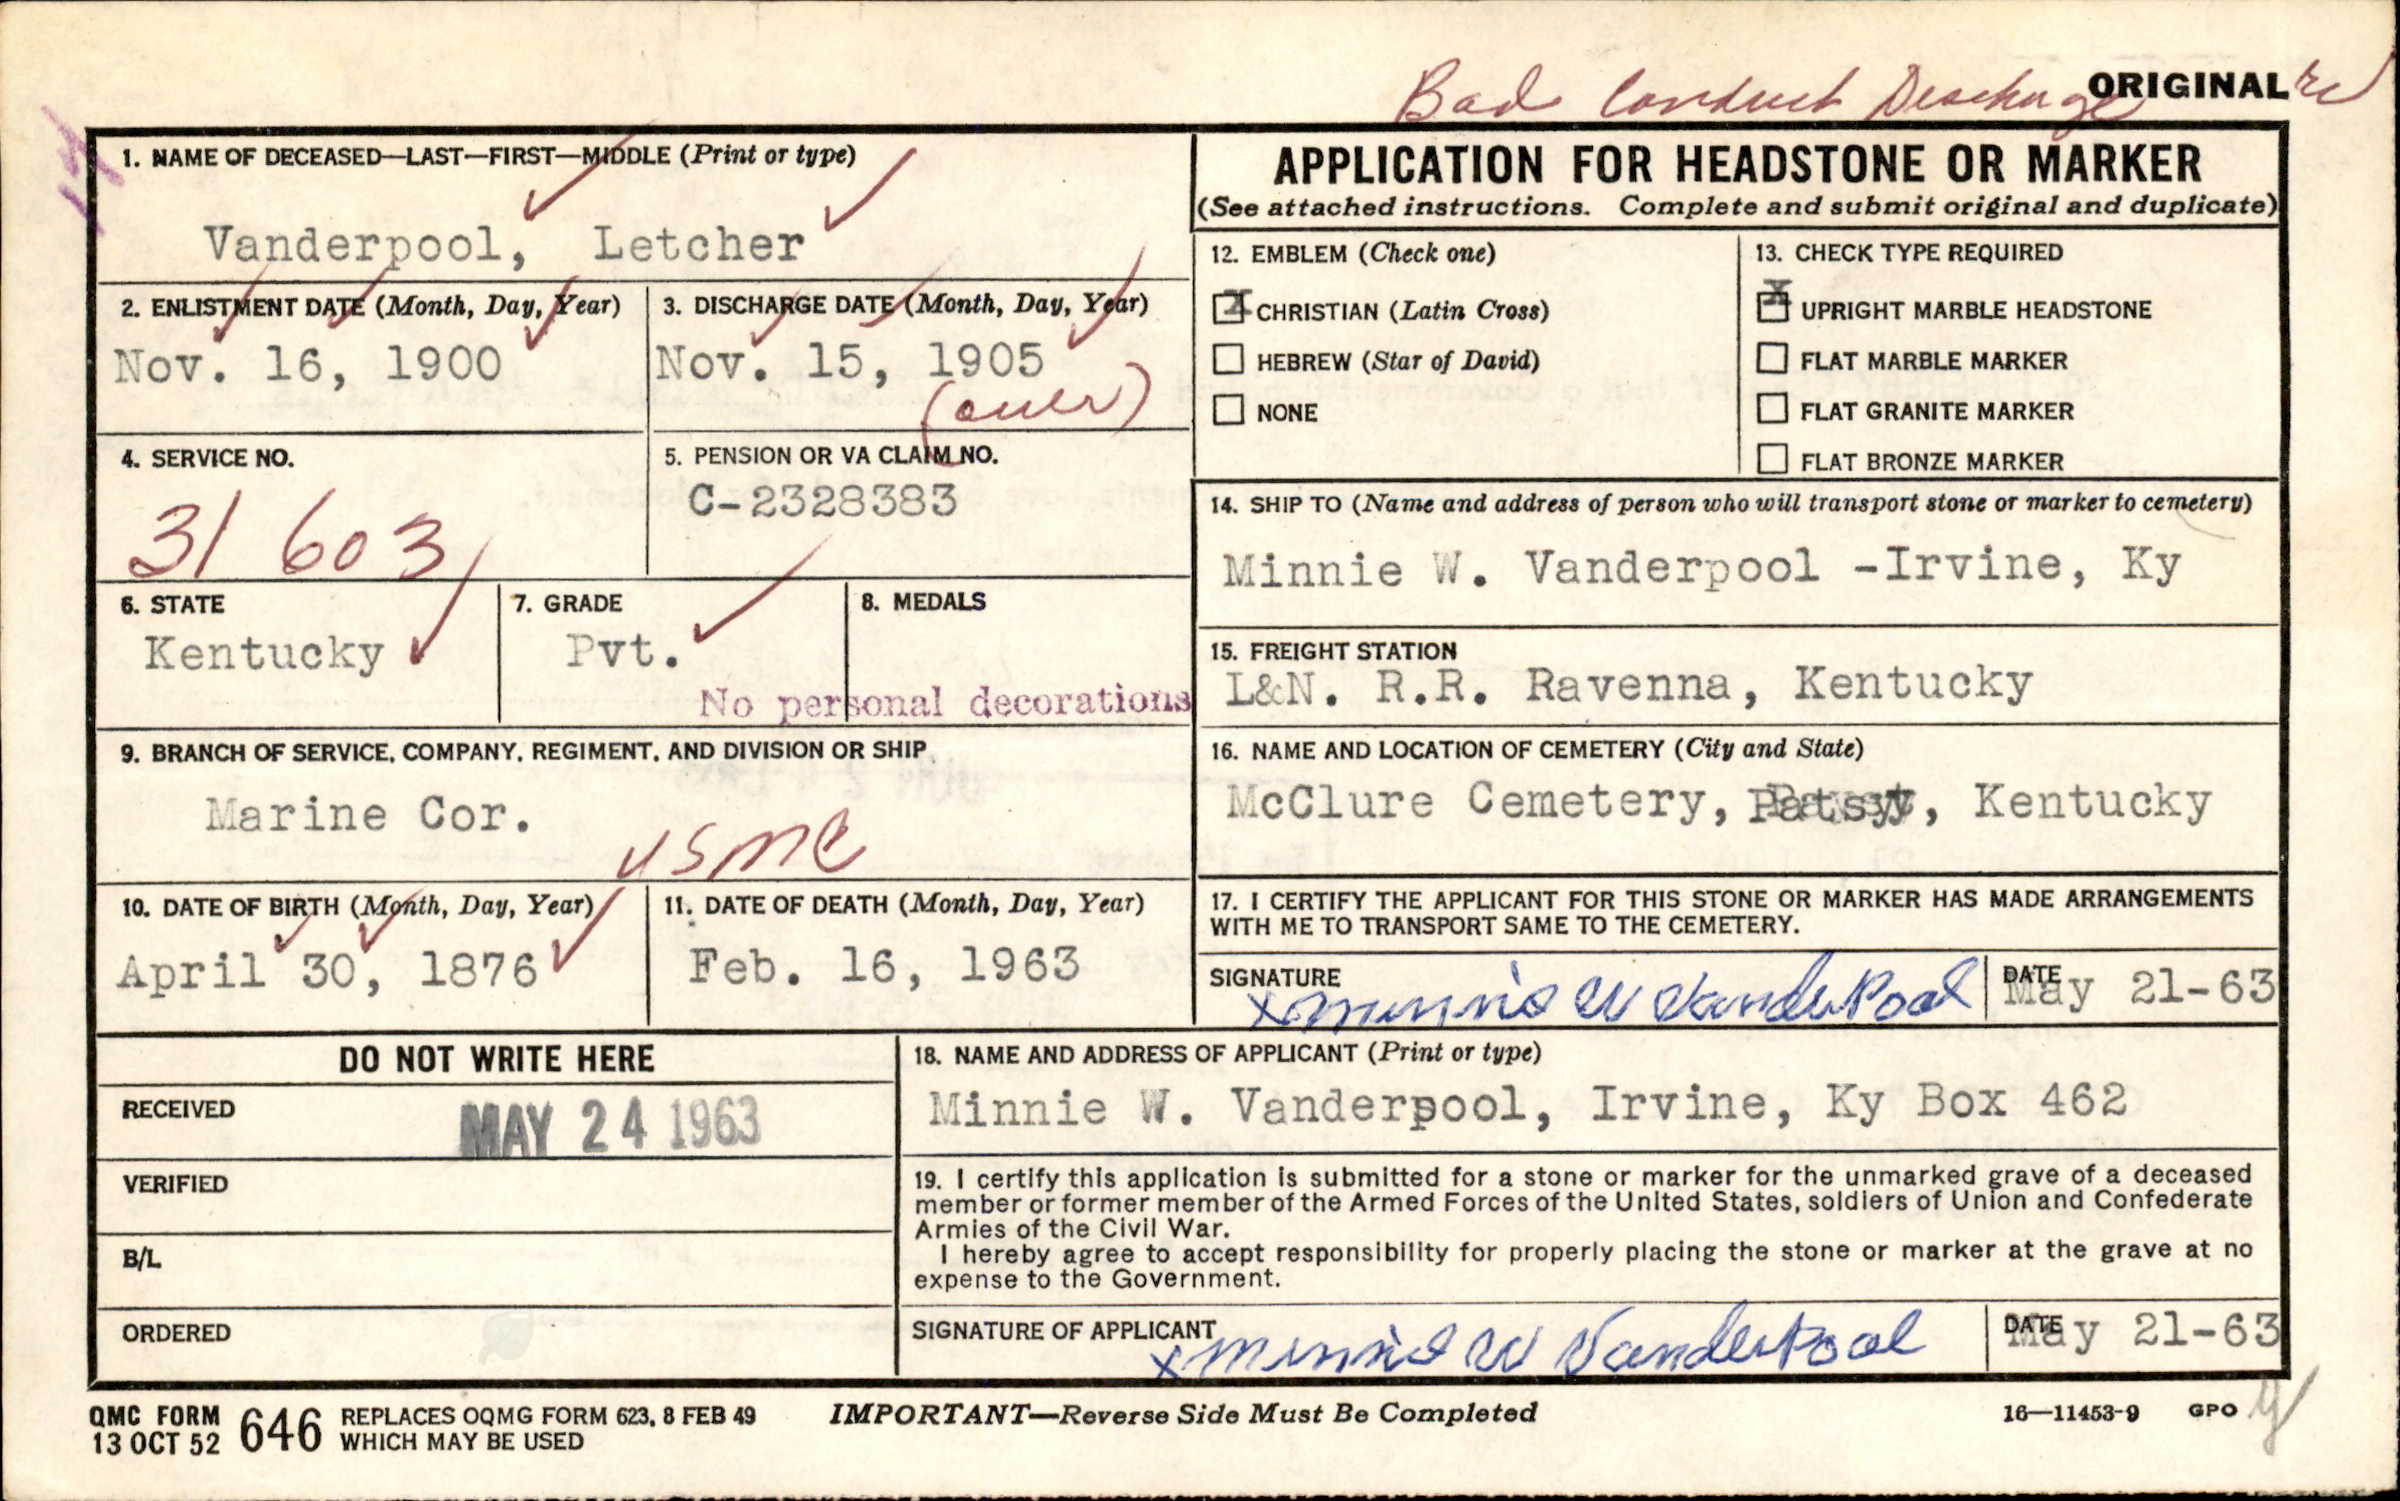 Bad Conduct Discharge
ORIGINAL
1. NAME OF DECEASED—LAST—FIRST—MIDDLE (Print or type)
Vanderpool, Letcher
2. ENLISTMENT DATE (Month, Day, Year)
Nov. 16, 1900
3. DISCHARGE DATE (Month, Day, Year)
Nov. 15, 1905
(over)
4. SERVICE NO.
31 603
5. PENSION OR VA CLAIM NO.
C-2328383
6. STATE
Kentucky
7. GRADE
Pvt.
8. MEDALS
No personal decorations
9. BRANCH OF SERVICE, COMPANY, REGIMENT, AND DIVISION OR SHIP
Marine Cor.
USMC
10. DATE OF BIRTH (Month, Day, Year)
April 30, 1876
11. DATE OF DEATH (Month, Day, Year)
Feb. 16, 1963
APPLICATION FOR HEADSTONE OR MARKER
(See attached instructions. Complete and submit original and duplicate)
12. EMBLEM (Check one)
X CHRISTIAN (Latin Cross)
HEBREW (Star of David)
NONE
13. CHECK TYPE REQUIRED
X UPRIGHT MARBLE HEADSTONE
FLAT MARBLE MARKER
FLAT GRANITE MARKER
FLAT BRONZE MARKER
14. SHIP TO (Name and address of person who will transport stone or marker to cemetery)
Minnie W. Vanderpool -Irvine, Ky
15. FREIGHT STATION
L&N. R.R. Ravenna, Kentucky
16. NAME AND LOCATION OF CEMETERY (City and State)
McClure Cemetery, Patsy, Kentucky
17. I CERTIFY THE APPLICANT FOR THIS STONE OR MARKER HAS MADE ARRANGEMENTS
WITH ME TO TRANSPORT SAME TO THE CEMETERY.
SIGNATURE
x Minnie W Vanderpool
DATE
May 21-63
DO NOT WRITE HERE
RECEIVED
MAY 24 1963
VERIFIED
B/L
ORDERED
18. NAME AND ADDRESS OF APPLICANT (Print or type)
Minnie W. Vanderpool, Irvine, Ky Box 462
19. I certify this application is submitted for a stone or marker for the unmarked grave of a deceased
member or former member of the Armed Forces of the United States, soldiers of Union and Confederate
Armies of the Civil War.
I hereby agree to accept responsibility for properly placing the stone or marker at the grave at no
expense to the Government.
SIGNATURE OF APPLICANT
x Minnie W Vanderpool
DATE
May 21-63
QMC FORM
13 OCT 52
646
REPLACES OQMG FORM 623, 8 FEB 49
WHICH MAY BE USED
IMPORTANT—Reverse Side Must Be Completed
16—11453-9 GPO